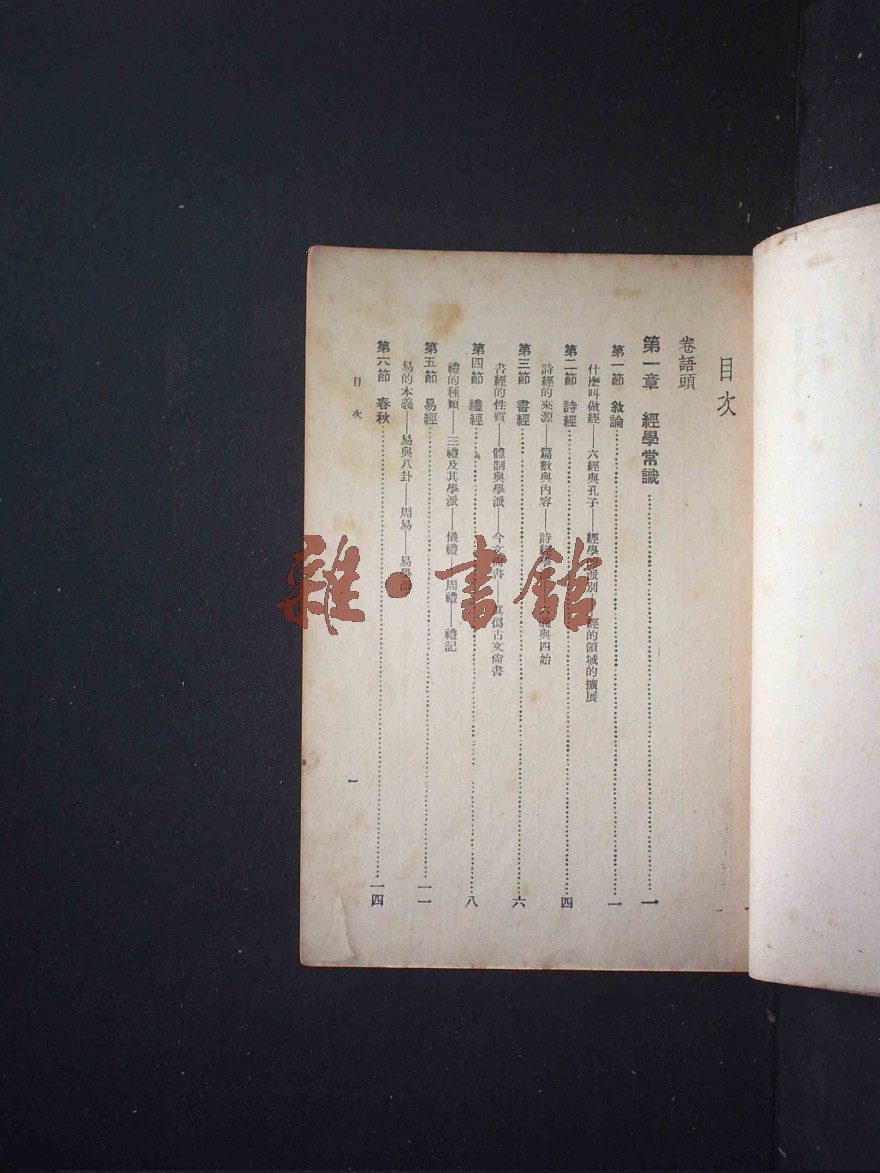 目次
卷語頭
第一章 經學常識……一
第一節 敘論……一
什麼叫做經——六經與孔子——經學派別——經的領域的擴展
第二節 詩經……四
詩經的來源——篇數與內容——詩 六義與四始
第三節 書經……六
書經的性質——體制與學派——今文尙書——眞僞古文尙書
第四節 禮經……八
禮的種類——三禮及其學派——儀禮——周禮——禮記
第五節 易經……一一
易的本義——易與八卦——周易——易學派
第六節 春秋……一四
目次
一
雜·書館